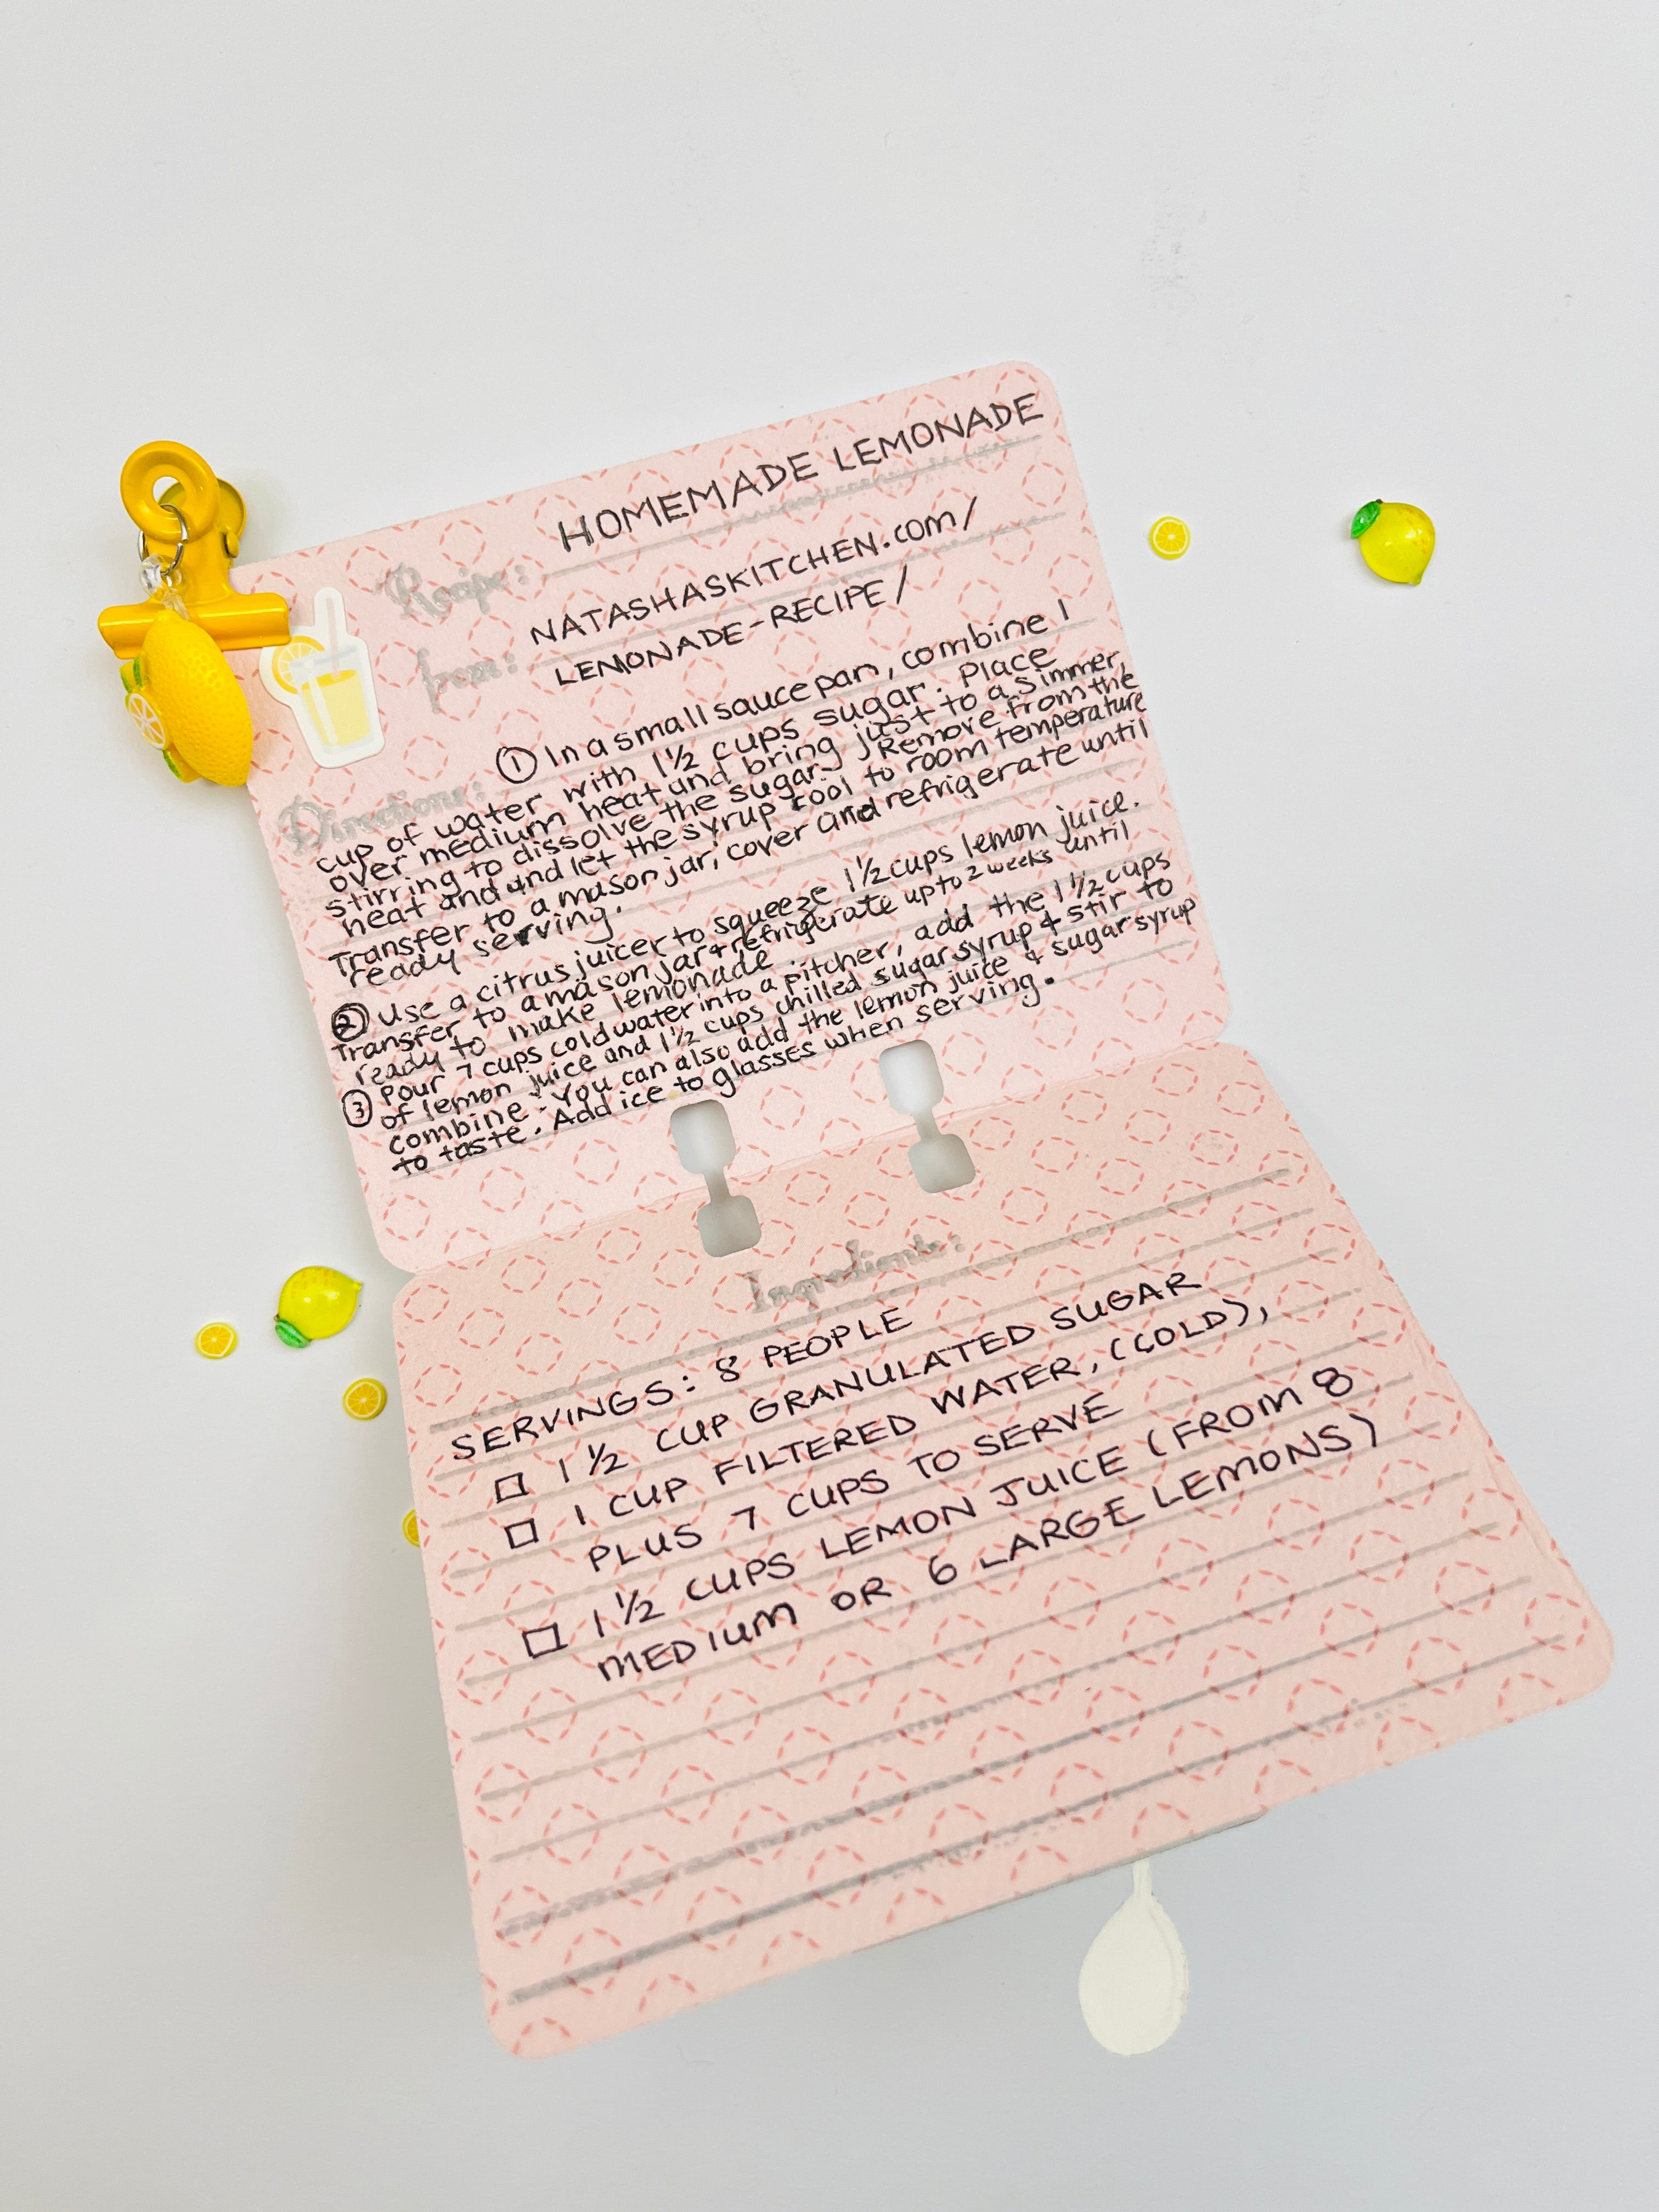 Recipe: HOMEMADE LEMONADE
from: NATASHASKITCHEN.com/
LEMONADE-RECIPE/
Directions: ① In a small sauce pan, combine 1
cup of water with 1½ cups sugar. Place
over medium heat and bring just to a simmer,
stirring to dissolve the sugar. Remove from the
heat and and let the syrup cool to room temperature
Transfer to a mason jar, cover and refrigerate until
ready serving.
② Use a citrus juicer to squeeze 1½ cups lemon juice.
Transfer to a mason jar & refrigerate up to 2 weeks until
ready to make lemonade.
③ Pour 7 cups cold water into a pitcher, add the 1½ cups
of lemon juice and 1½ cups chilled sugar syrup & stir to
combine. You can also add the lemon juice & sugar syrup
to taste. Add ice to glasses when serving.
Ingredients:
SERVINGS: 8 PEOPLE
□ 1½ CUP GRANULATED SUGAR
□ 1 CUP FILTERED WATER, (COLD),
PLUS 7 CUPS TO SERVE
□ 1½ CUPS LEMON JUICE (FROM 8
MEDIUM OR 6 LARGE LEMONS)